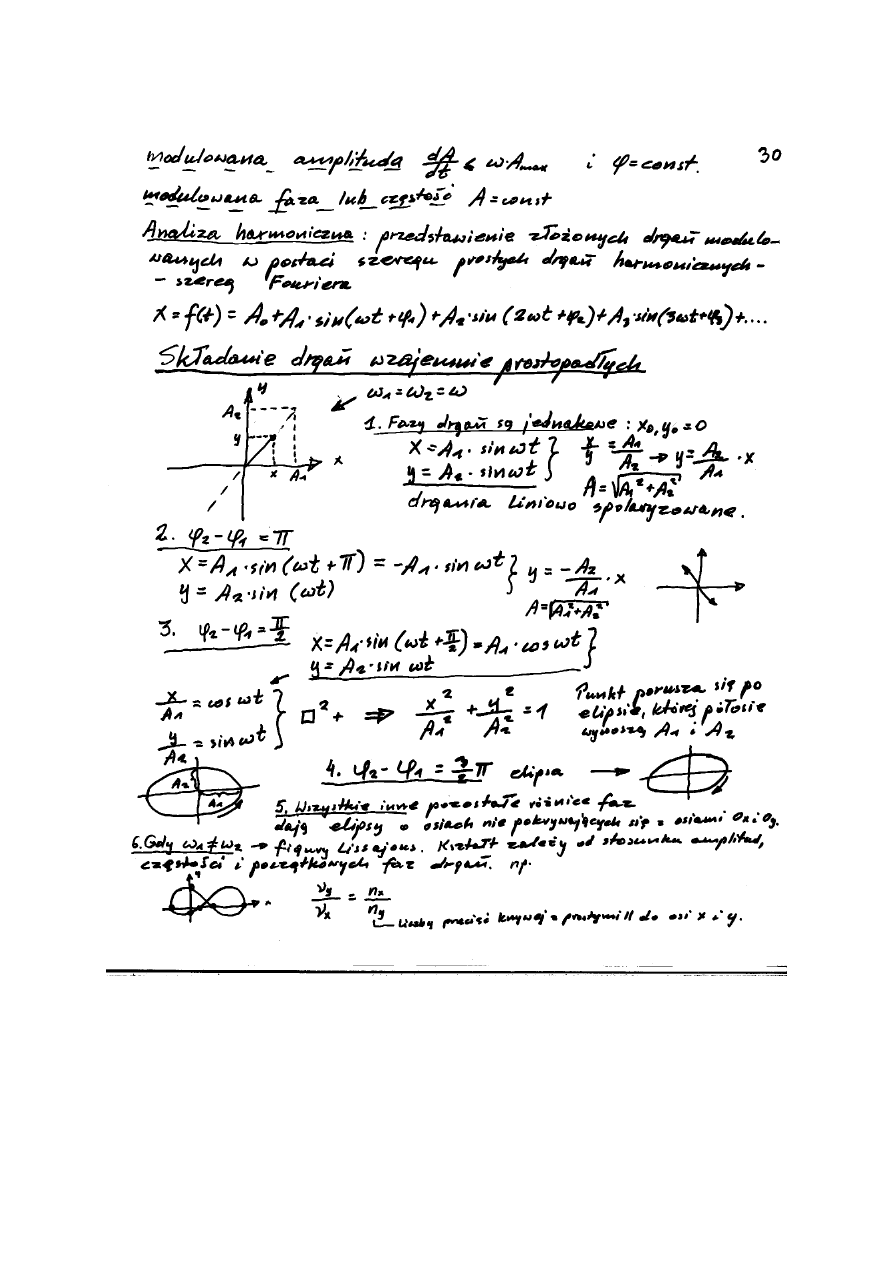 modulowana amplituda dA/dt < ω·Amax i φ=const. 30
modulowana faza lub częstość A=const
Analiza harmoniczna : przedstawienie złożonych drgań modulo-
wanych w postaci szeregu prostych drgań harmonicznych -
- szereg Fouriera
X=f(t) = A₀+A₁·sin(ωt+φ₁)+A₂·sin(2ωt+φ₂)+A₃·sin(3ωt+φ₃)+....
Składanie drgań wzajemnie prostopadłych
ω₁=ω₂=ω
y A₂ y x A₁ x
1. Fazy drgań są jednakowe : x₀,y₀=0
X=A₁·sinωt
y=A₂·sinωt } x/y = A₁/A₂ → y=A₂/A₁·x
A=√A₁²+A₂²
drgania liniowo spolaryzowane.
2. φ₂-φ₁=π
X=A₁·sin(ωt+π) = -A₁·sinωt
y=A₂·sin(ωt) } y=-A₂/A₁·x
A=√A₁²+A₂²
3. φ₂-φ₁=π/2
X=A₁·sin(ωt+π/2)=A₁·cosωt
y=A₂·sinωt }
x/A₁ = cosωt
y/A₂ = sinωt } □²+ ⇒ x²/A₁² + y²/A₂² =1
Punkt porusza się po
elipsie, której półosie
wynoszą A₁ i A₂
A₂ A₁
4. φ₂-φ₁ = 3/2π elipsa →
5. Wszystkie inne pozostałe różnice faz
dają elipsy o osiach nie pokrywających się z osiami Ox i Oy.
6. Gdy ω₁≠ω₂ → figury Lissajous. Kształt zależy od stosunku amplitud,
częstości i początkowych faz drgań. np.
y x
νy/νx = nx/ny
liczby przecięć krzywej z prostymi II do osi x i y.